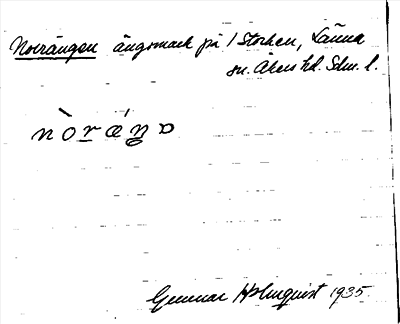 Norrängen ängsmark på / Storken, Länna
sn. Åkers hd. Sdm. l.
nòrǽŋo
Gunnar Holmquist 1935.